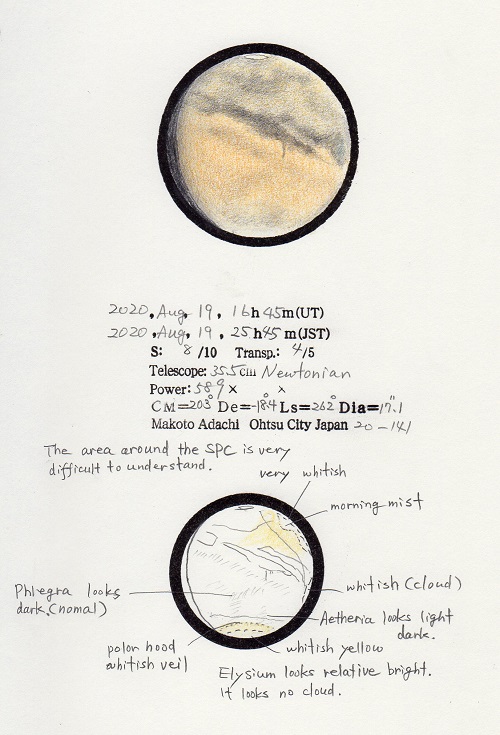 2020, Aug, 19, 16h 45m(UT)
2020, Aug, 19, 25h45 m(JST)
S: 8 /10 Transp.: 4/5
Telescope: 35.5cm Newtonian
Power: 589 × ×
CM=203° De=-18.4° Ls=262° Dia=17".1
Makoto Adachi Ohtsu City Japan 20-141
The area around the SPC is very
difficult to understand.
very whitish
morning mist
Phlegra looks
dark.(nomal)
whitish (cloud)
Aetheria looks light
dark.
polor hood
whitish veil
whitish yellow
Elysium looks relative bright.
It looks no cloud.